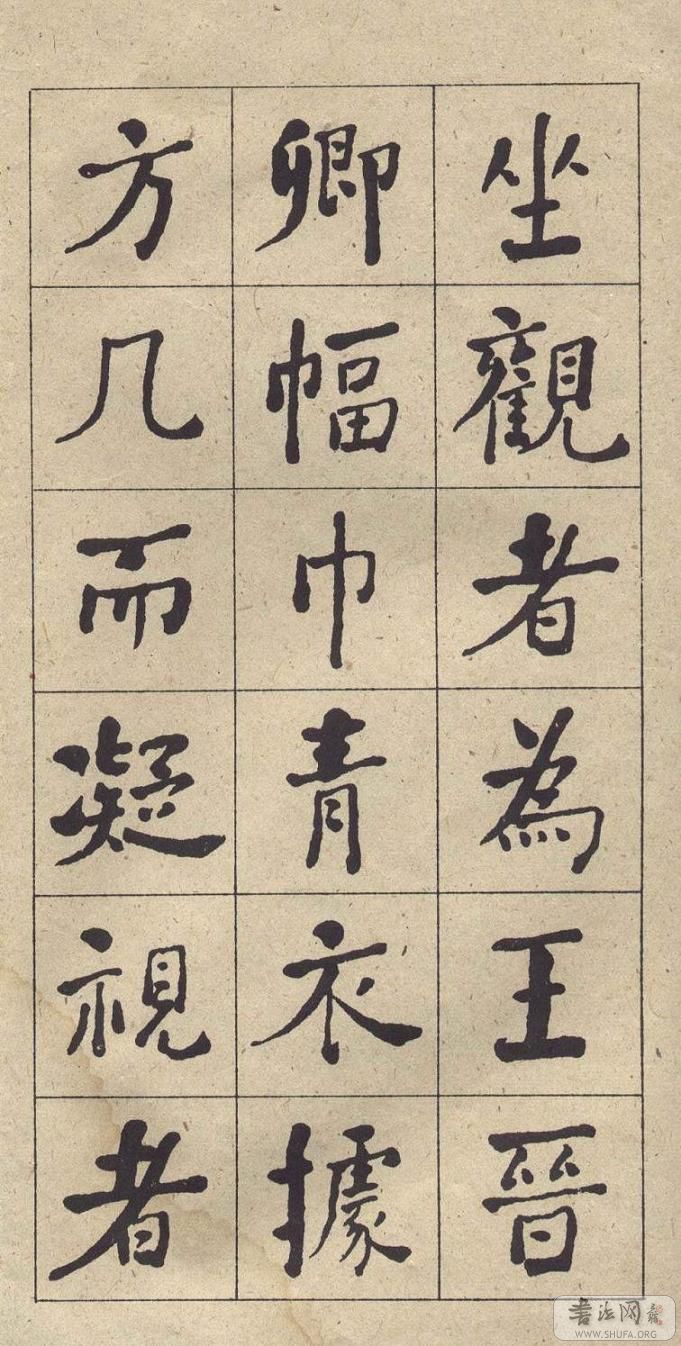 坐觀者為王晉
卿幅巾青衣據
方几而凝視者
書法网
WWW.SHUFA.ORG